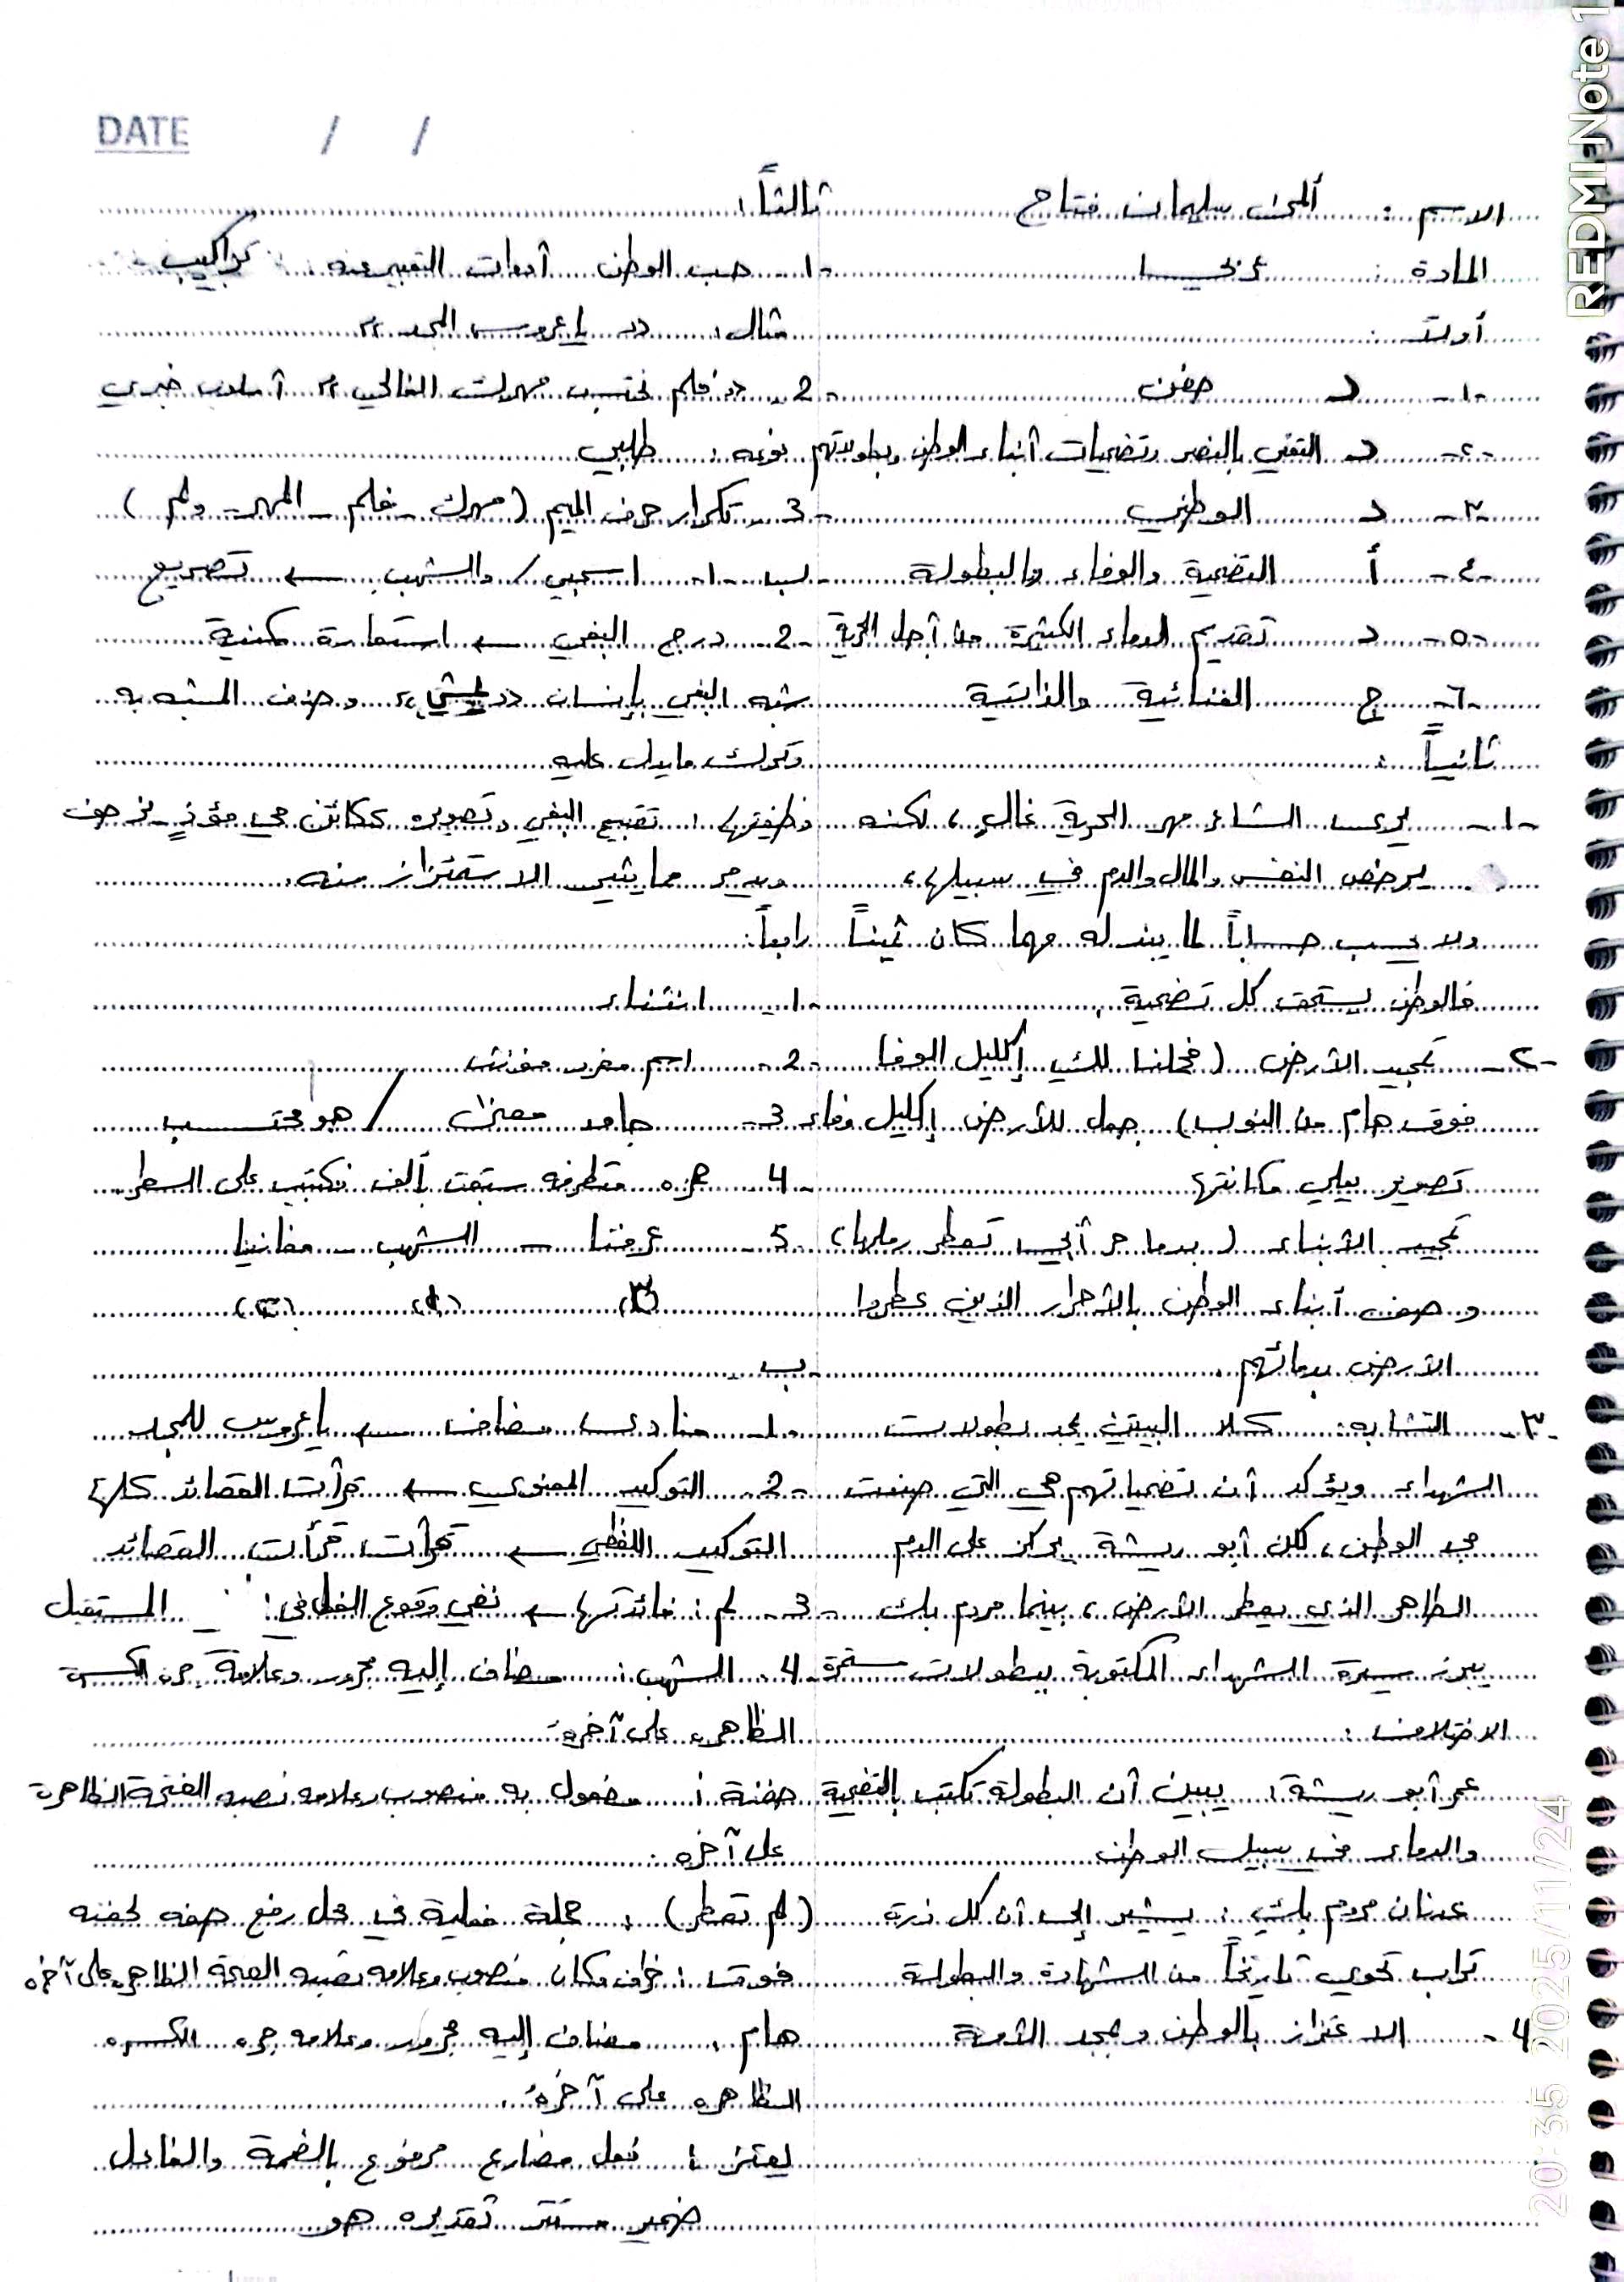 DATE / /
الاسم : ألمى سليمان فتاح
المادة : عربي
أولاً :
-١- د جفن
-٢- د التغني بالنصر وتضحيات أبناء الوطن وبطولاتهم
-٣- د الوطني
-٤- أ التضحية والوفاء والبطولة
-٥- د تقديم الدماء الكثيرة من أجل الحرية
-٦- ج الغنائية والذاتية
ثانياً :
-١- يرى الشاعر مهر الحرية غالٍ، لكنه
يرخص النفس والمال والدم في سبيلها،
ولا يحسب حساباً لما يبذله مهما كان ثميناً
فالوطن يستحق كل تضحية.
-٢- تمجيد الأرض ( فحملنا لك إكليل الوفا
فوق هام من النوب) جعل للأرض إكليل وفاء
تصوير يعلي مكانتها
تمجيد الأبناء ( بدما حر أبي تعطر رملها)
وصف أبناء الوطن بالأحرار الذين عطروا
الأرض بدمائهم.
-٣- التشابه: كلا البيتين يمجد بطولات
الشهداء ويؤكد أن تضحياتهم هي التي صنعت
مجد الوطن، لكن أبو ريشة يركز على الدم
الطاهر الذي يعطر الأرض، بينما مردم بك
يبرز سيرة الشهداء المكتوبة ببطولات مستمرة
الاختلاف :
عمر أبو ريشة : يبين أن البطولة تكتب بالتضحية
والدماء في سبيل الوطن
عدنان مردم بك : يشير إلى أن كل ذرة
تراب تحوي تاريخاً من الشهادة والبطولة
4- الاعتزاز بالوطن ومجد الأمة
ثالثاً :
-١- حب الوطن أدوات التعبير عنه : تراكيب
مثال : " يا عروس المجد "
-2- " فلم نحتسب مهرك الغالي " أسلوب خبري
نوعه : طلبي
-3- تكرار حرف الميم (مهرك - فلم - المهر - ولم )
ب -١- اسحبي / والشهب ← تصريع
-2- درج البغي ← استعارة مكنية
شبه البغي بإنسان " يمشي " وحذف المشبه به
وترك ما يدل عليه
وظيفتها : تقبيح البغي وتصويره ككائن حي مؤذٍ يزحف
ويدمر مما يثير الاشمئزاز منه.
رابعاً:
-١- انتشاء
-2- اسم مفرد مؤنث
3- جامد معنى / هو محتسب
-4 همزه متطرفه سبقت بألف فكتبت على السطر
-5 عرفتنا - الشهب - مغانينا
(٣) (١) (٢)
-ب-
-١- منادى مضاف ← يا عروس المجد
-2- التوكيد المعنوي ← قرأت القصائد كلها
التوكيد اللفظي ← قرأت قرأت القصائد
-3- لم : فائدتها ← نفي وقوع الفعل في المستقبل
-4- الشهب : مضاف إليه مجرور وعلامة جره الكسرة
الظاهره على آخره.
حفنة : مفعول به منصوب وعلامه نصبه الفتحة الظاهرة
على آخره.
( لم تعطر) : جملة فعلية في محل رفع صفه لحفنه
فوق : ظرف مكان منصوب وعلامه نصبه الفتحة الظاهره على آخره
هام : مضاف إليه مجرور وعلامه جره الكسره
الظاهره على آخره.
يعتز : فعل مضارع مرفوع بالضمة والفاعل
ضمير مستتر تقديره هو
REDMI Note 1
20:35 2025/11/24